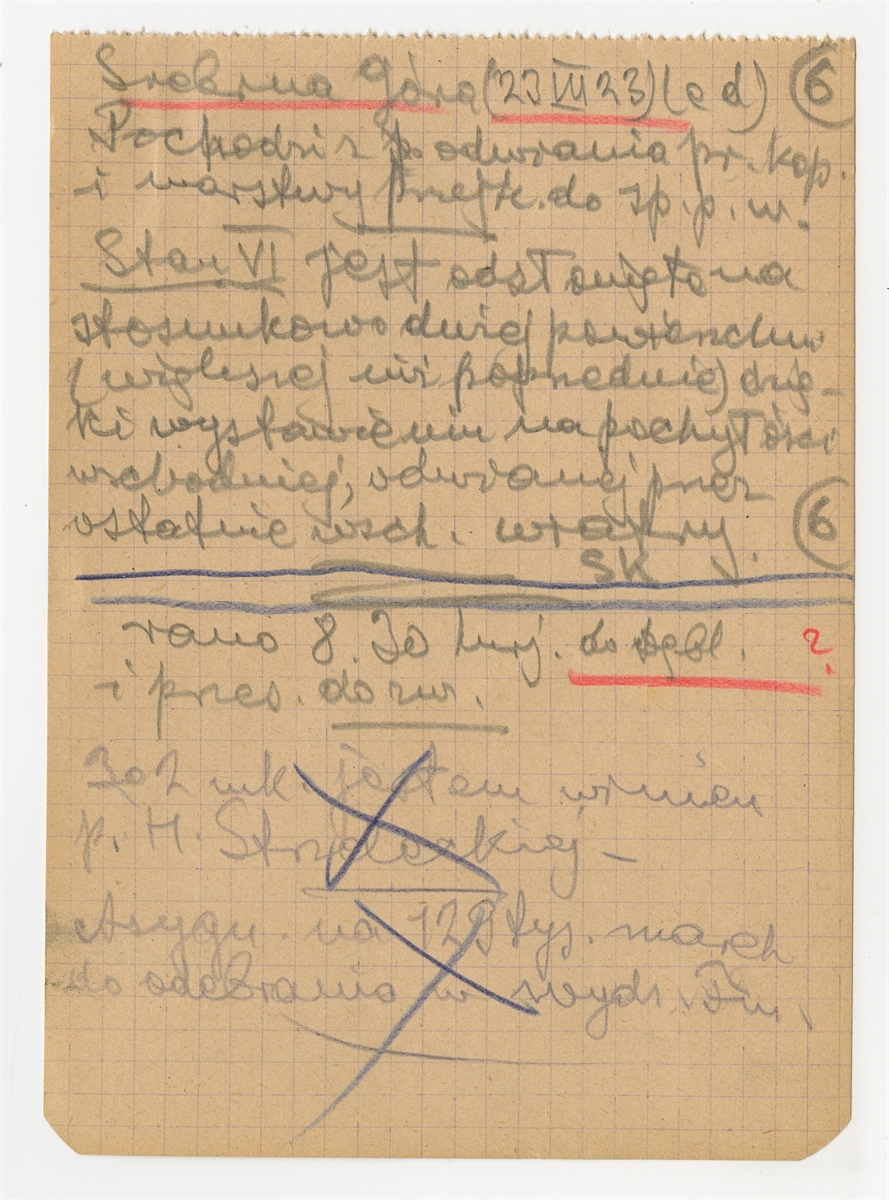 Srebrna Góra (23 VII 23) (c d) 6
Pochodzi z podwiania pr. kop.
i warstwy przejśc. do sp. p. w.
Stan. VI jest odsłonięte na
stosunkowo dużej powierzchni
(większej niż poprzednie) dzię-
ki wystawieniu na pochyłości
wschodniej, odwianej przez
ostatnie wsch. wiatry. 6
SK
rano 8.30 do Dębl. ?
i przes. do zw.
Zoł mk. jestem winien
p. H. Strzałeckiej –
Asygn. na 129 tys. marek
do odebrania w wydz. Fin.